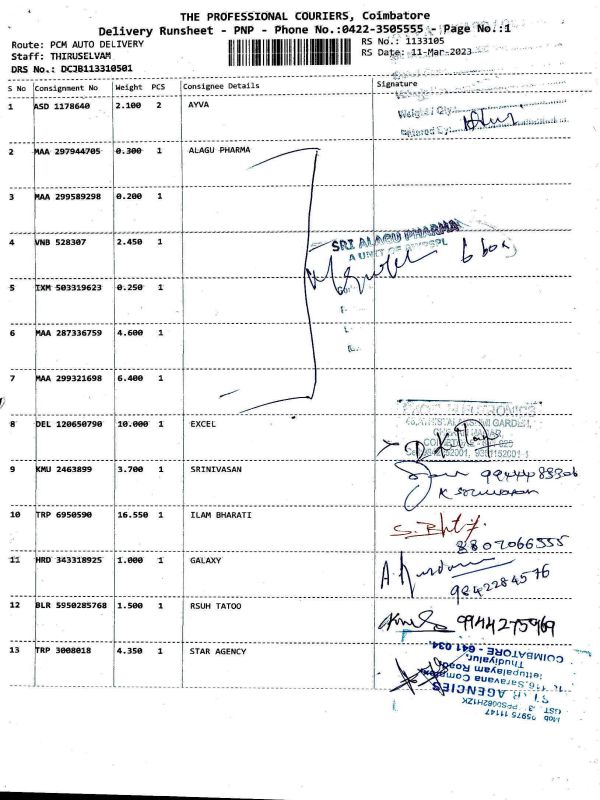 THE PROFESSIONAL COURIERS, Coimbatore
Delivery Runsheet - PNP - Phone No.:0422-3505555 - Page No.:1
Route: PCM AUTO DELIVERY
Staff: THIRUSELVAM
DRS No.: DCJB113310501
RS No.: 1133105
RS Date: 11-Mar-2023
S No Consignment No Weight PCS Consignee Details Signature
1 ASD 1178640 2.100 2 AYVA
Weight / Qty:
2 MAA 297944705 0.300 1 ALAGU PHARMA
3 MAA 299589298 0.200 1
4 VNB 528307 2.450 1
SRI ALAGU PHARMA
A UNIT OF
6 box
5 IXM 503319623 0.250 1
6 MAA 287336759 4.600 1
7 MAA 299321698 6.400 1
8 DEL 120650790 10.000 1 EXCEL
9 KMU 2463899 3.700 1 SRINIVASAN
K srinivasan
10 TRP 6950590 16.550 1 ILAM BHARATI
8807066555
11 HRD 343318925 1.000 1 GALAXY
9842284576
12 BLR 5950285768 1.500 1 RSUH TATOO
9944275969
13 TRP 3008018 4.350 1 STAR AGENCY
COIMBATORE - 641 034.
Thudiyalur,
Saravana Complex
AGENCIES
Mob